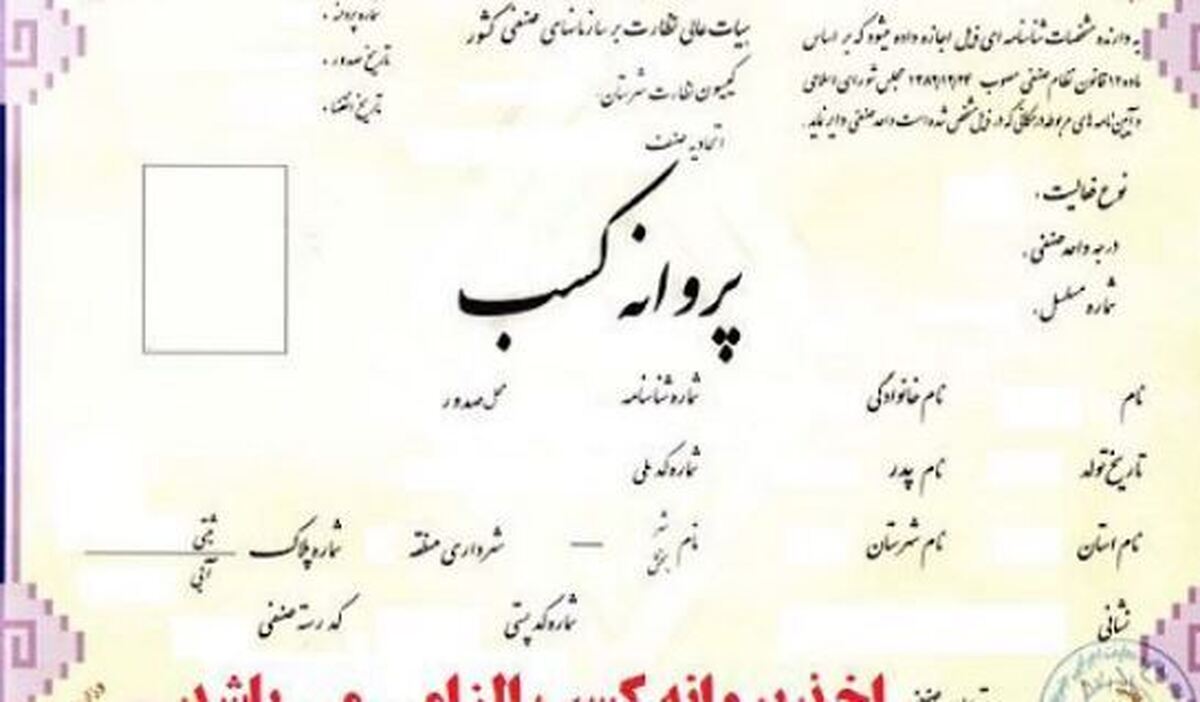 به دارنده مشخصات شناسنامه ای ذیل اجازه داده میشود که بر اساس
ماده ۱۲ قانون نظام صنفی مصوب ۱۳۸۲/۱۲/۲۴ مجلس شورای اسلامی
و آیین نامه های مربوطه در مکانی که در ذیل مشخص شده است واحد صنفی دایر نماید.
هیات عالی نظارت بر سازمانهای صنفی کشور
کمیسیون نظارت شهرستان:
اتحادیه صنف
شماره پروانه :
تاریخ صدور :
تاریخ انقضا :
نوع فعالیت :
درجه واحد صنفی :
شماره مسلسل :
پروانه کسب
نام نام خانوادگی شماره شناسنامه محل صدور
تاریخ تولد نام پدر شماره کد ملی
نام استان نام شهرستان نام شهر بخش — شهرداری منطقه شماره پلاک ثبتی آبی
نشانی شماره کد پستی کد رسته صنفی
اخذ پروانه کسب الزامی می باشد